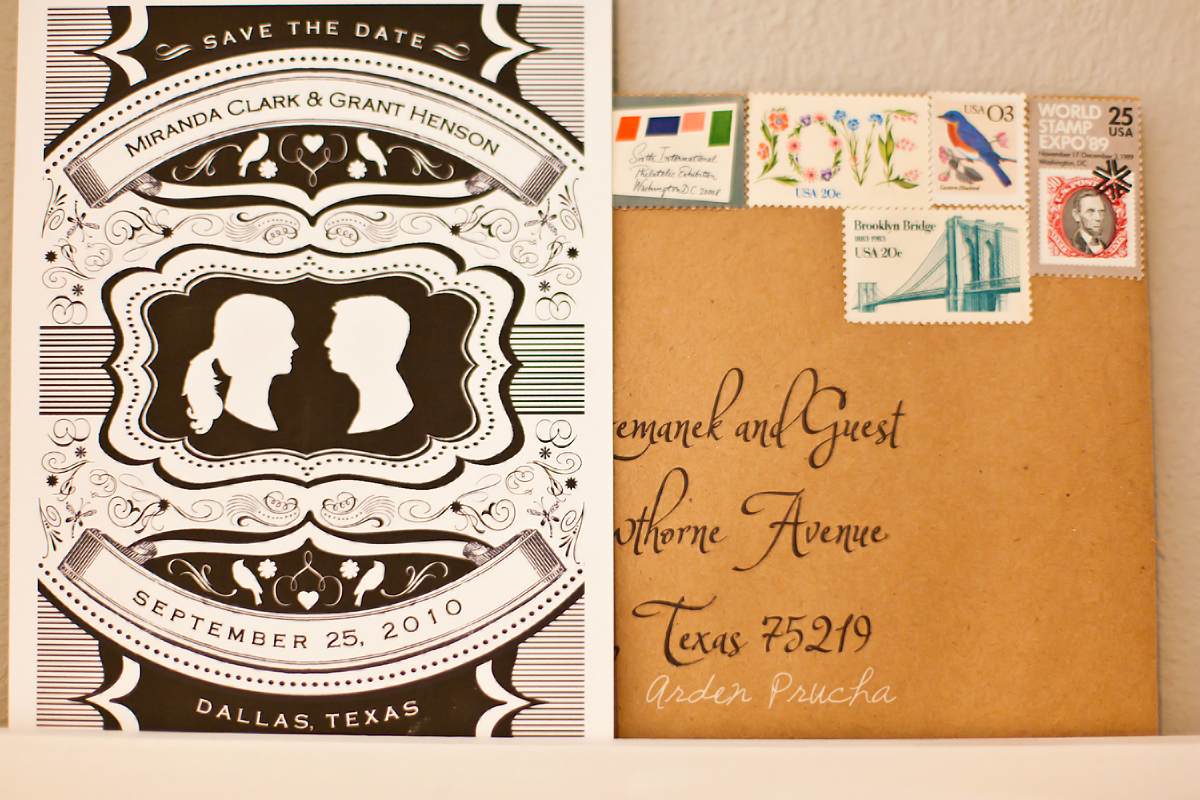 SAVE THE DATE
MIRANDA CLARK & GRANT HENSON
SEPTEMBER 25, 2010
DALLAS, TEXAS
Sixth International
Philatelic Exhibition
Washington D.C. 20008
LOVE
USA 20c
USA 03
Eastern Bluebird
WORLD
STAMP
EXPO '89
25
USA
November 17-December 3, 1989
Washington, DC
Brooklyn Bridge
1883-1983
USA 20c
emanek and Guest
wthorne Avenue
Texas 75219
Arden Prucha